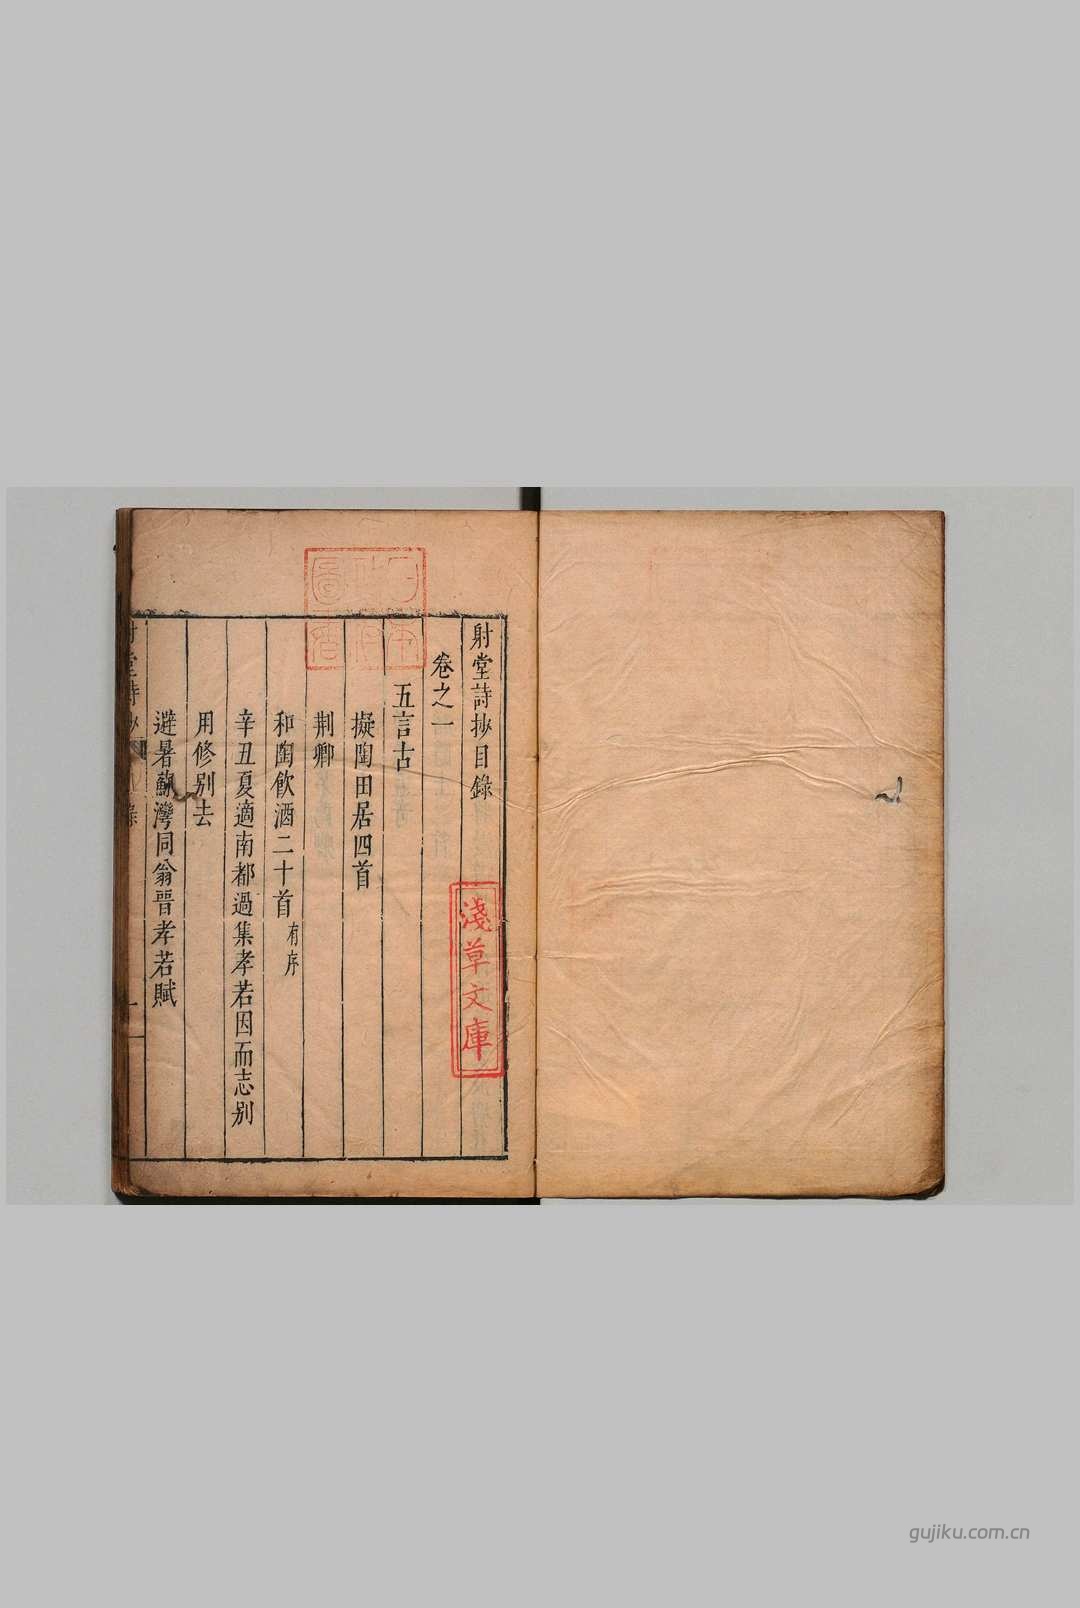 射堂詩抄目錄
卷之一
五言古
擬陶田居四首
荆卿
和陶飲酒二十首有序
辛丑夏適南都過集孝若因而志别
用修别去
避暑蘇灣同翁晉孝若賦
射堂詩抄
淺草文庫
gujiku.com.cn